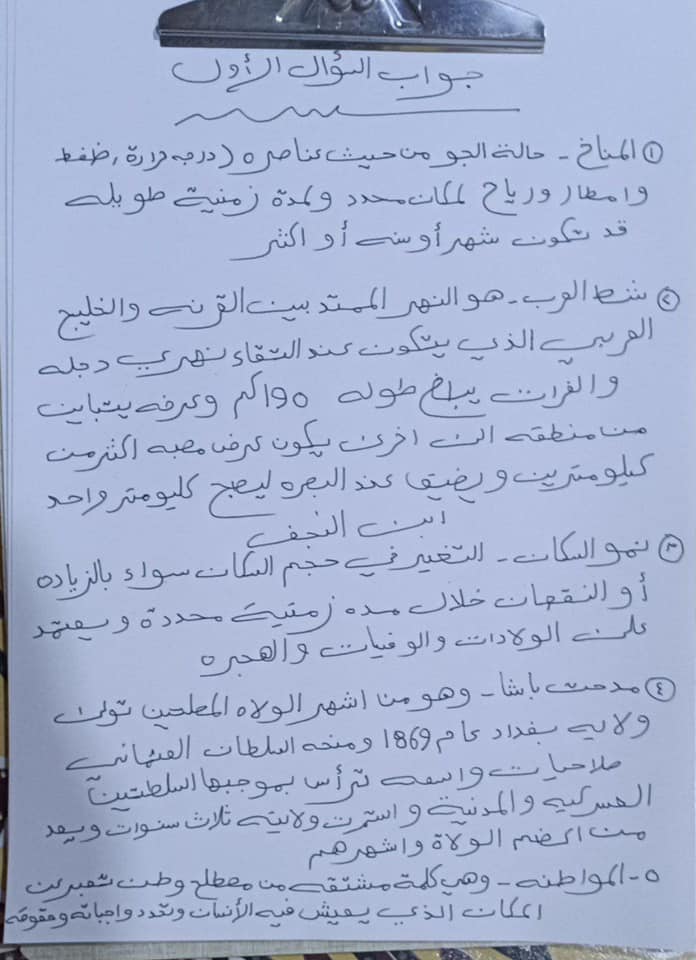 جواب السؤال الأول
① المناخ - حالة الجو من حيث عناصره (درجه حرارة , ظغط
وامطار ورياح لمكان محدد ولمدة زمنية طويله
قد تكون شهر أو سنه أو اكثر
② شط العرب - هو النهر الممتد بين القرنه والخليج
العربي الذي يتكون عند التقاء نهري دجله
والفرات يبلغ طوله ١٩٥ كم وعرضه يتباين
من منطقه الى اخرى يكون عرض مصبه اكثر من
كيلومترين ويضيق عند البصره ليصبح كليومتر واحد
ابن النجف
③ نمو السكان - التغير في حجم السكان سواء بالزياده
أو النقصان خلال مده زمنية محددة ويعتمد
على الولادات والوفيات والهجره
④ مدحت باشا - وهو من اشهر الولاه المصلحين تولى
ولايه بغداد عام 1869 ومنحه السلطان العثماني
صلاحيات واسعه ترأس بموجبها السلطتين
العسكريه والمدنية واستمرت ولايته ثلاث سنوات ويعد
من اعضم الولاة واشهرهم
٥- المواطنه - وهي كلمة مشتقه من مصطلح وطن تعبر عن
المكان الذي يعيش فيه الأنسان وتحدد واجباته وحقوقه